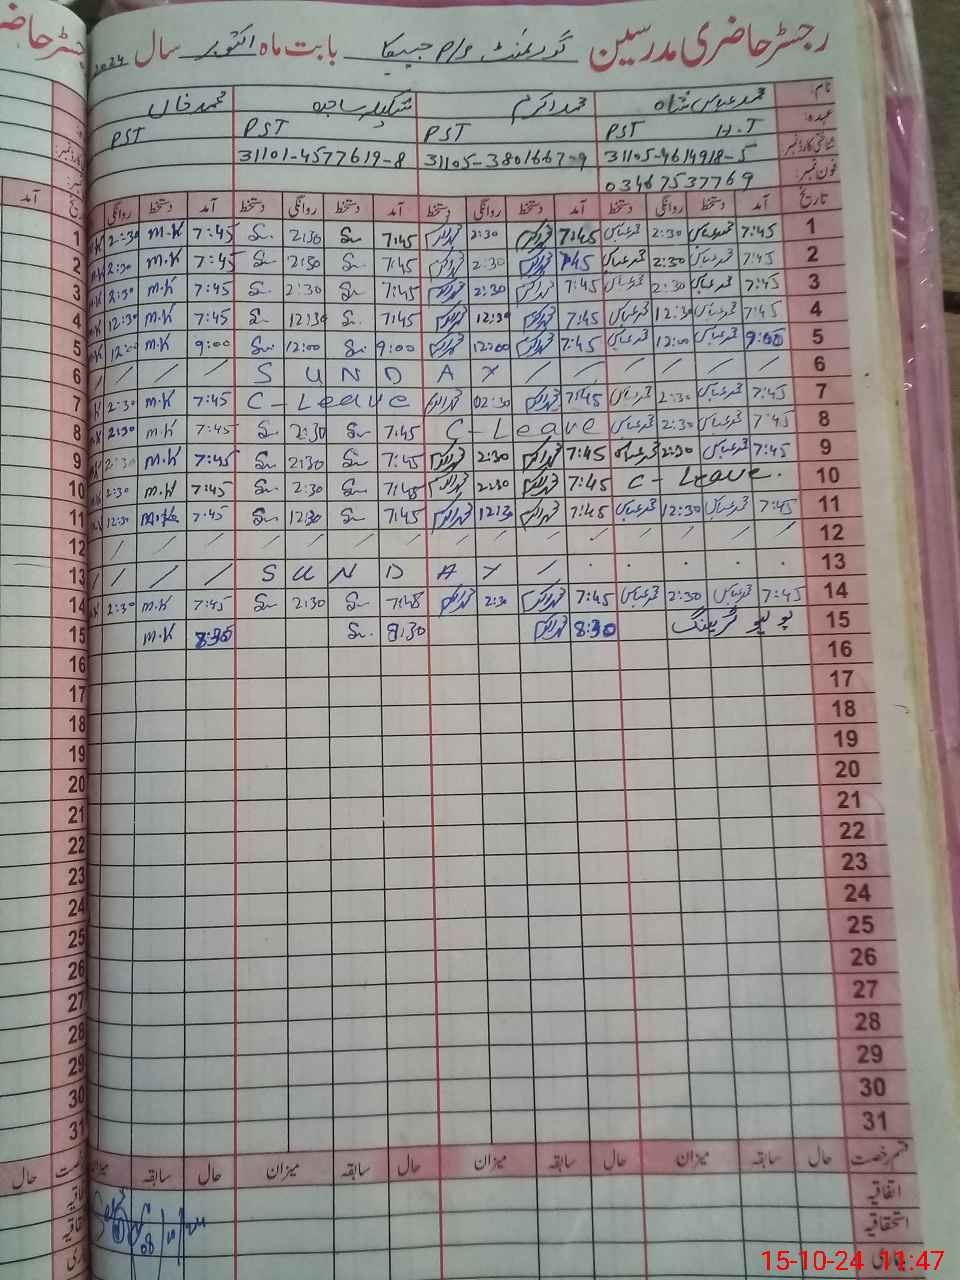 رجسٹر حاضری مدرسین گورنمنٹ بابت ماہ اکتوبر سال 2024
نام: محمد عباس شاہ محمد اکرم شکیلہ ساجدہ محمد خاں
عہدہ: H.T PST PST PST PST
شناختی کارڈ نمبر: 31105-4614918-5 31105-3801667-9 31101-4577619-8
فون نمبر: 03467537769
تاریخ آمد دستخط روانگی دستخط آمد دستخط روانگی دستخط آمد دستخط روانگی دستخط آمد دستخط روانگی
1 7:45 محمد عباس 2:30 محمد عباس 7:45 محمد اکرم 2:30 محمد اکرم 7:45 2:30 7:45 M.K 2:30 M.K
2 7:45 محمد عباس 2:30 محمد عباس 7:45 محمد اکرم 2:30 محمد اکرم 7:45 2:30 7:45 M.K 2:30 M.K
3 7:45 محمد عباس 2:30 محمد عباس 7:45 محمد اکرم 2:30 محمد اکرم 7:45 2:30 7:45 M.K 2:30 M.K
4 7:45 محمد عباس 12:30 محمد عباس 7:45 محمد اکرم 12:30 محمد اکرم 7:45 12:30 7:45 M.K 12:30 M.K
5 9:00 محمد عباس 12:00 محمد عباس 7:45 محمد اکرم 12:00 محمد اکرم 9:00 12:00 9:00 M.K 12:00 M.K
6 / / / / S U N D A Y / / / / / /
7 7:45 محمد عباس 2:30 محمد عباس 7:45 محمد اکرم 02:30 محمد اکرم C-Leave 7:45 M.K 2:30
8 7:45 محمد عباس 2:30 محمد عباس C-Leave 7:45 2:30 7:45 M.K 2:30 M.K
9 7:45 محمد عباس 2:30 محمد عباس 7:45 محمد اکرم 2:30 محمد اکرم 7:45 2:30 7:45 M.K 2:30 M.K
10 C-Leave. 7:45 محمد اکرم 2:30 محمد اکرم 7:45 2:30 7:45 M.K 2:30 M.K
11 7:45 محمد عباس 12:30 محمد عباس 7:45 محمد اکرم 12:30 محمد اکرم 7:45 12:30 7:45 M.K 12:30 M.K
12
13 / / / / S U N D A Y /
14 7:45 محمد عباس 2:30 محمد عباس 7:45 محمد اکرم 2:30 محمد اکرم 7:45 2:30 7:45 M.K 2:30 M.K
15 پولیو ٹریننگ 8:30 محمد اکرم 8:30 8:30 M.K
16
17
18
19
20
21
22
23
24
25
26
27
28
29
30
31
قسم رخصت حال سابقہ میزان حال سابقہ میزان حال سابقہ میزان حال سابقہ میزان
اتفاقیہ
استحقاقیہ
08/10/24
15-10-24 11:47